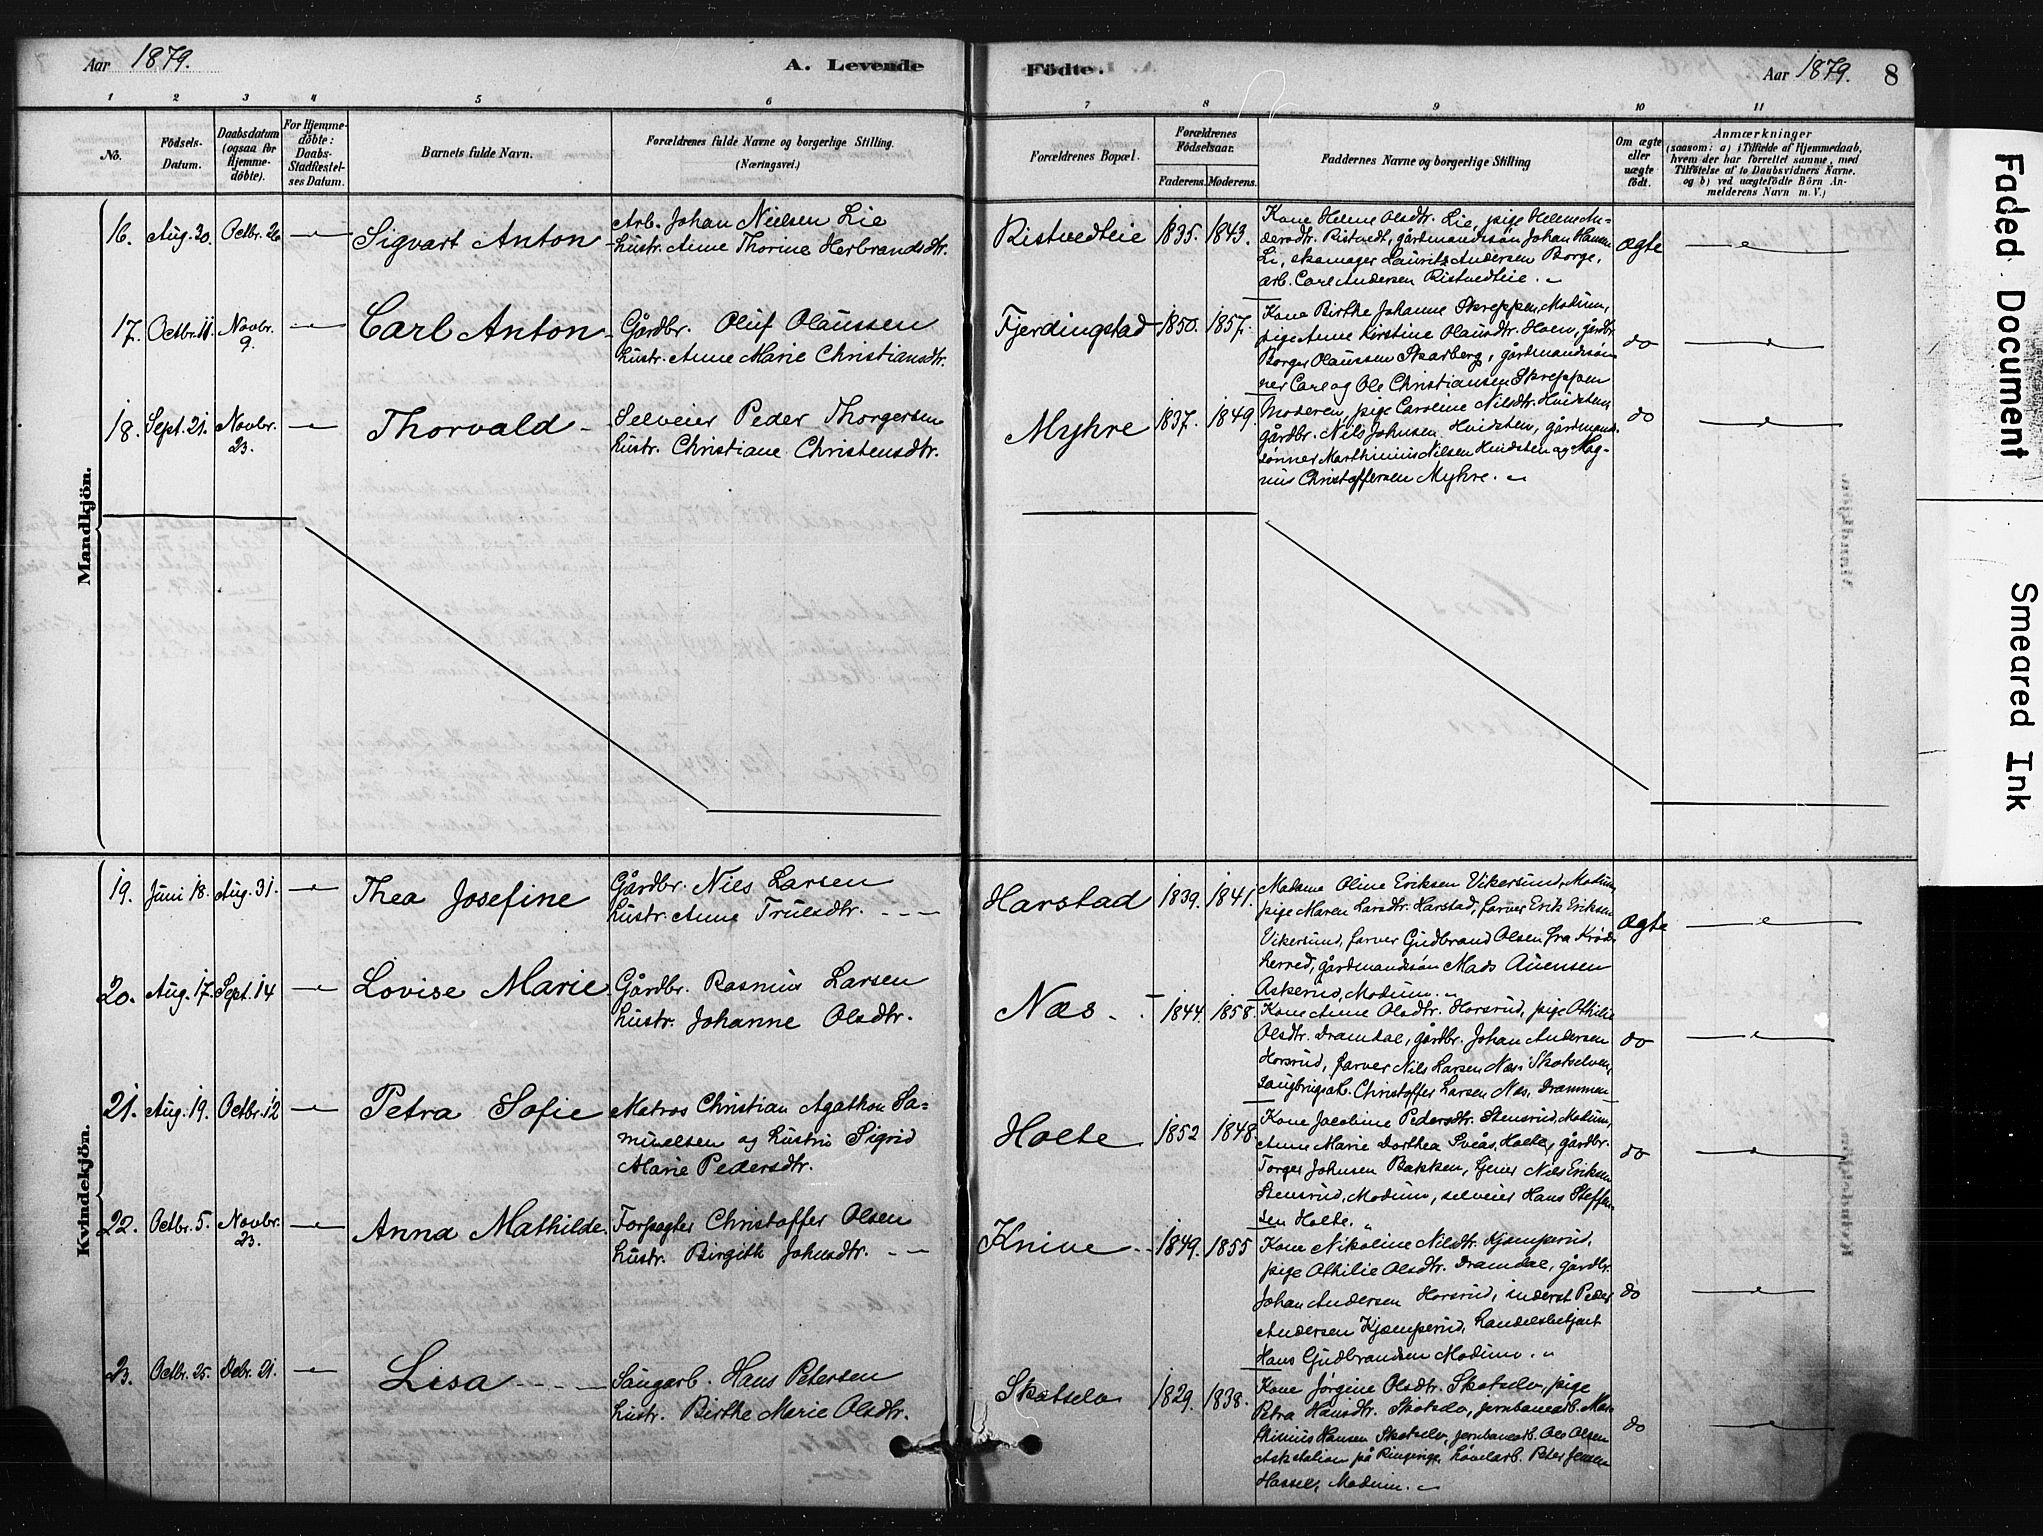 Aar 1879.
A. Levende
Födte.
Aar 1879.
8
1 2 3 4 5 6 7 8 9 10 11
No.
Födsels-
Datum.
Daabsdatum
(ogsaa for
Hjemme-
döbte).
For Hjemme-
döbte:
Daabs-
Stadfæstel-
ses Datum.
Barnets fulde Navn.
Forældrenes fulde Navne og borgerlige Stilling.
(Næringsvei.)
Forældrenes Bopæl.
Forældrenes
Födselsaar.
Faderens. Moderens.
Faddernes Navne og borgerlige Stilling
Om ægte
eller
uægte
födt.
Anmærkninger
(saasom: a) i Tilfælde af Hjemmedaab,
hvem der har forrettet samme, med
Tilföielse af to Daabsvidners Navne.
og b) ved uægtefödte Börn An-
melderens Navn m. V.)
Mandkjön.
16. Aug. 20. Octbr. 26 Sigvart Anton
Arb. Johan Nielsen Lie
hustr. Anne Thorine Herbrandsdtr.
Ristvedteie 1835. 1843.
Kone Helene Olsdtr. Lie, pige Helene An-
dersdtr. Ristvedt, gårdmandssön Johan Hansen
Li, skomager Lauritz Andersen Borge,
arb. Carl Andersen Ristvedteie.
ægte
17. Octbr. 11. Novbr.
9.
Carl Anton
Gårdbr. Oluf Olaussen
hustr. Anne Marie Christiansdtr.
Fjerdingstad 1850. 1857.
Kone Birthe Johanne Skreppen, Modum,
pige Anne Kirstine Olausdtr. Hoen, gårdbr.
Borger Olaussen Skarberg, gårdmandssön-
ner Carl og Ole Christiansen Skreppen
do
18. Sept. 21. Novbr.
23.
Thorvald
Selveier Peder Thorgersen
hustr. Christiane Christensdtr.
Myhre 1837. 1849.
Moderen, pige Caroline Nilsdtr. Hvidsten,
gårdbr. Nils Johnsen Hvidsten, gårdmands-
sönner Marthinius Nilsen Hvidsten og Mag-
nus Christoffersen Myhre.
do
Kvindekjön.
19. Juni 18. Aug. 31. Thea Josefine
Gårdbr. Niels Larsen
hustr. Anne Trulsdtr.
Harstad 1839. 1841.
Madame Oline Eriksen Vikersund, Modum,
pige Maren Larsdtr. Harstad, farver Erik Eriksen
Vikersund, farver Gudbrand Olsen fra Kröds-
herred, gårdmandssön Mads Auensen
Askerud, Modum.
ægte
20. Aug. 17. Sept. 14 Lovise Marie
Gårdbr. Rasmus Larsen
hustr. Johanne Olsdtr.
Næs 1844. 1858.
Kone Anne Olsdtr. Horsrud, pige Othilie
Olsdtr. Dramdal, gårdbr. Johan Andersen
Horsrud, farver Nils Larsen Næs Skotselven,
saugbrugsarb. Christoffer Larsen Næs, Drammen
do
21. Aug. 19. Octbr. 12 Petra Sofie
Matros Christian Agathon Sa-
muelsen og hustru Sigrid
Marie Pedersdtr.
Holte 1852 1848.
Kone Jacobine Pedersdtr. Stensrud, Modum,
Anne Marie Dorthea Sveås, Holte, gårdbr.
Torger Johnsen Bakken, tjener Nils Eriksen
Stensrud, Modum, selveier Hans Steffen-
sen Holte.
do
22. Octbr. 5. Novbr.
23.
Anna Mathilde
Forpagter Christoffer Olsen
hustr. Birgith Johnsdtr.
Knive 1849. 1855
Kone Nikoline Nilsdtr. Kjæmperud,
pige Othilie Olsdtr. Dramdal, gårdbr.
Johan Andersen Horsrud, inderst Peder
Andersen Kjæmperud, handelsbetjent
Hans Gudbrandsen Modum.
do
23. Octbr. 25. Decbr. 21. Lisa
Saugarb. Hans Petersen
hustr. Birthe Marie Olsdtr.
Skotselv 1829. 1838.
Kone Jörgine Olsdtr. Skotselv, pige
Petra Hansdtr. Skotselv, jernbanearb. Mar-
thinius Hansen Skotselv, jernbanearb. Ole Olsen
Askstation på Ringerige, hövelarb. Peter Jensen
Hassel, Modum.
do
Faded Document
Smeared Ink